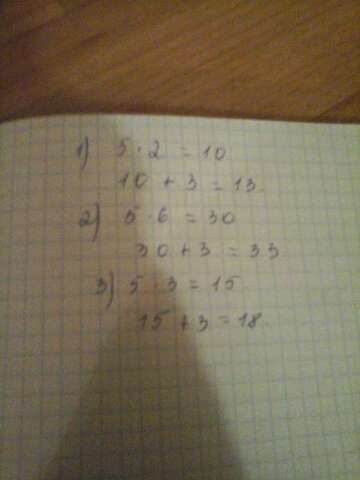 1) 5 · 2 = 10
10 + 3 = 13.
2) 5 · 6 = 30
30 + 3 = 33
3) 5 · 3 = 15
15 + 3 = 18.